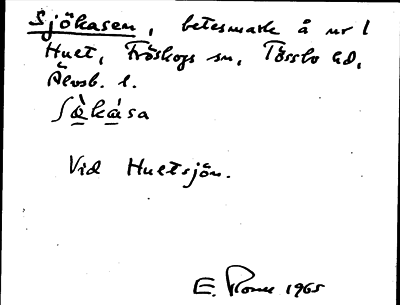 Sjökasen, betesmark å nr 1
Huet, Fröskogs sn, Tössbo hd,
Älvsb. l.
ʃø̀kása
Vid Huetsjön.
E. 1965